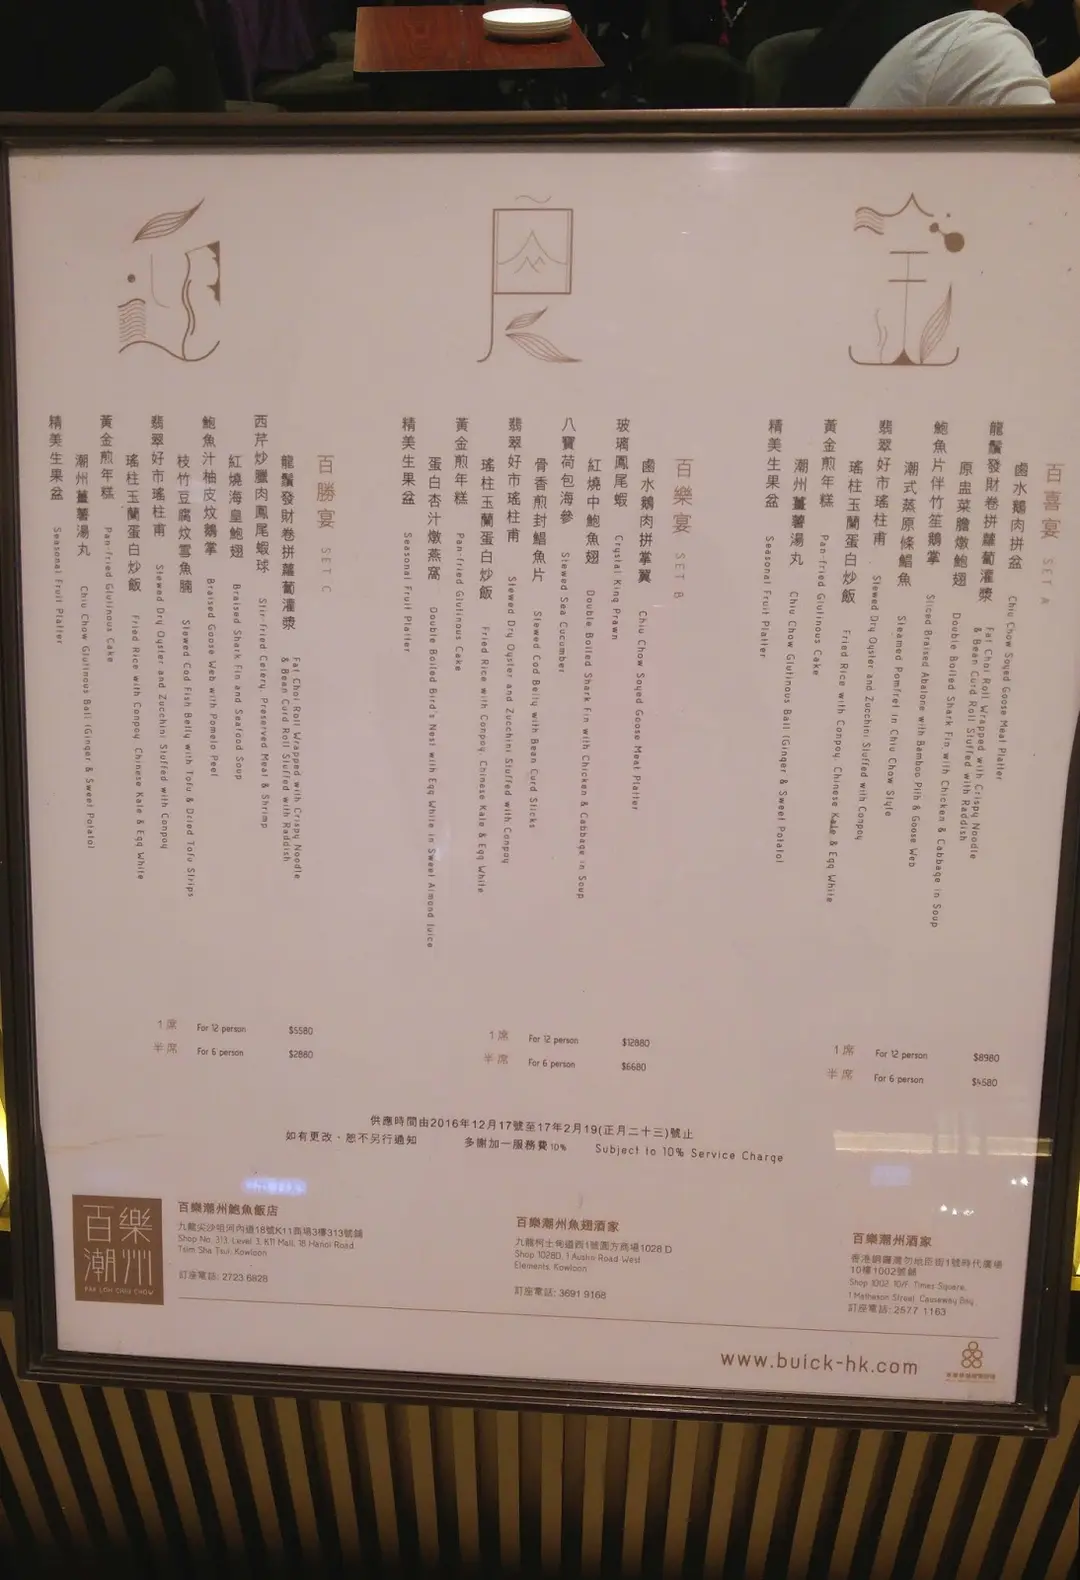 百喜宴 SET A
鹵水鵝肉拼盆 Chiu Chow Soyed Goose Meat Platter
龍鬚發財卷拼蘿蔔灌漿 Fat Choi Roll Wrapped with Crispy Noodle
& Bean Curd Roll Stuffed with Raddish
原盅菜膽燉鮑翅 Double Boiled Shark Fin with Chicken & Cabbage in Soup
鮑魚片伴竹笙鵝掌 Sliced Braised Abalone with Bamboo Pith & Goose Web
潮式蒸原條鯧魚 Steamed Pomfret in Chiu Chow Style
翡翠好市瑤柱甫 Stewed Dry Oyster and Zucchini Stuffed with Conpoy
瑤柱玉蘭蛋白炒飯 Fried Rice with Conpoy, Chinese Kale & Egg White
黃金煎年糕 Pan-fried Glutinous Cake
潮州薑薯湯丸 Chiu Chow Glutinous Ball (Ginger & Sweet Potato)
精美生果盆 Seasonal Fruit Platter
1席 For 12 person $8980
半席 For 6 person $4580
百樂宴 SET B
鹵水鵝肉拼掌翼 Chiu Chow Soyed Goose Meat Platter
玻璃鳳尾蝦 Crystal King Prawn
紅燒中鮑魚翅 Double Boiled Shark Fin with Chicken & Cabbage in Soup
八寶荷包海參 Stewed Sea Cucumber
骨香煎封鯧魚片 Stewed Cod Belly with Bean Curd Sticks
翡翠好市瑤柱甫 Stewed Dry Oyster and Zucchini Stuffed with Conpoy
瑤柱玉蘭蛋白炒飯 Fried Rice with Conpoy, Chinese Kale & Egg White
黃金煎年糕 Pan-fried Glutinous Cake
蛋白杏汁燉燕窩 Double Boiled Bird's Nest with Egg White in Sweet Almond Juice
精美生果盆 Seasonal Fruit Platter
1席 For 12 person $12880
半席 For 6 person $6680
百勝宴 SET C
龍鬚發財卷拼蘿蔔灌漿 Fat Choi Roll Wrapped with Crispy Noodle
& Bean Curd Roll Stuffed with Raddish
西芹炒臘肉鳳尾蝦球 Stir-fried Celery, Preserved Meat & Shrimp
紅燒海皇鮑翅 Braised Shark Fin and Seafood Soup
鮑魚汁柚皮炆鵝掌 Braised Goose Web with Pomelo Peel
枝竹豆腐炆雪魚腩 Stewed Cod Fish Belly with Tofu & Dried Tofu Strips
翡翠好市瑤柱甫 Stewed Dry Oyster and Zucchini Stuffed with Conpoy
瑤柱玉蘭蛋白炒飯 Fried Rice with Conpoy, Chinese Kale & Egg White
黃金煎年糕 Pan-fried Glutinous Cake
潮州薑薯湯丸 Chiu Chow Glutinous Ball (Ginger & Sweet Potato)
精美生果盆 Seasonal Fruit Platter
1席 For 12 person $5580
半席 For 6 person $2880
供應時間由2016年12月17號至17年2月19(正月二十三)號止
如有更改、恕不另行通知 多謝加一服務費10% Subject to 10% Service Charge
百樂
潮州
PAK LOH CHIU CHOW
百樂潮州鮑魚飯店
九龍尖沙咀河內道18號K11商場3樓313號舖
Shop No. 313, Level 3, K11 Mall, 18 Hanoi Road
Tsim Sha Tsui, Kowloon
訂座電話: 2723 6828
百樂潮州魚翅酒家
九龍柯士甸道西1號圓方商場1028 D
Shop 1028D, 1 Austin Road West
Elements, Kowloon
訂座電話: 3691 9168
百樂潮州酒家
香港銅鑼灣勿地臣街1號時代廣場
10樓1002號舖
Shop 1002, 10/F, Times Square,
1 Matheson Street, Causeway Bay
訂座電話: 2577 1163
www.buick-hk.com